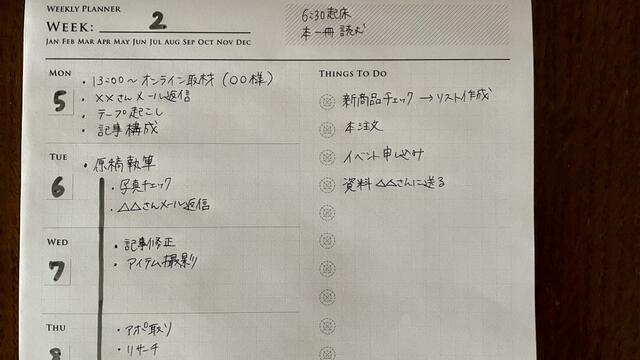 WEEKLY PLANNER
WEEK: 2
JAN FEB MAR APR MAY JUN JUL AUG SEP OCT NOV DEC
6:30起床
本一冊読む
MON
5
・13:00〜オンライン取材（〇〇様）
・××さんメール返信
・テープ起こし
・記事構成
TUE
6
・原稿執筆
・写真チェック
・△△さんメール返信
WED
7
・記事修正
・アイテム撮影
THU
8
・アポ取り
・リサーチ
THINGS TO DO
新商品チェック →リスト作成
本注文
イベント申込み
資料 △△さんに送る